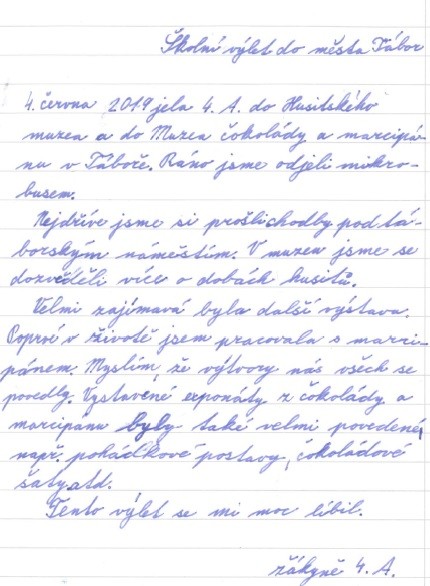 Školní výlet do města Tábor
4. června 2019 jela 4. A. do Husitského
muzea a do Muzea čokolády a marcipá-
nu v Táboře. Ráno jsme odjeli mikro-
busem.
Nejdříve jsme si prošli chodby pod tá-
borským náměstím. V muzeu jsme se
dozvěděli více o dobách husitů.
Velmi zajímavá byla další výstava.
Poprvé v životě jsem pracovala s marci-
pánem. Myslím, že výtvory nás všech se
povedly. Vystavené exponáty z čokolády a
marcipánu byly také velmi povedené,
např. pohádkové postavy, čokoládové
šaty atd.
Tento výlet se mi moc líbil.
žákyně 4. A.